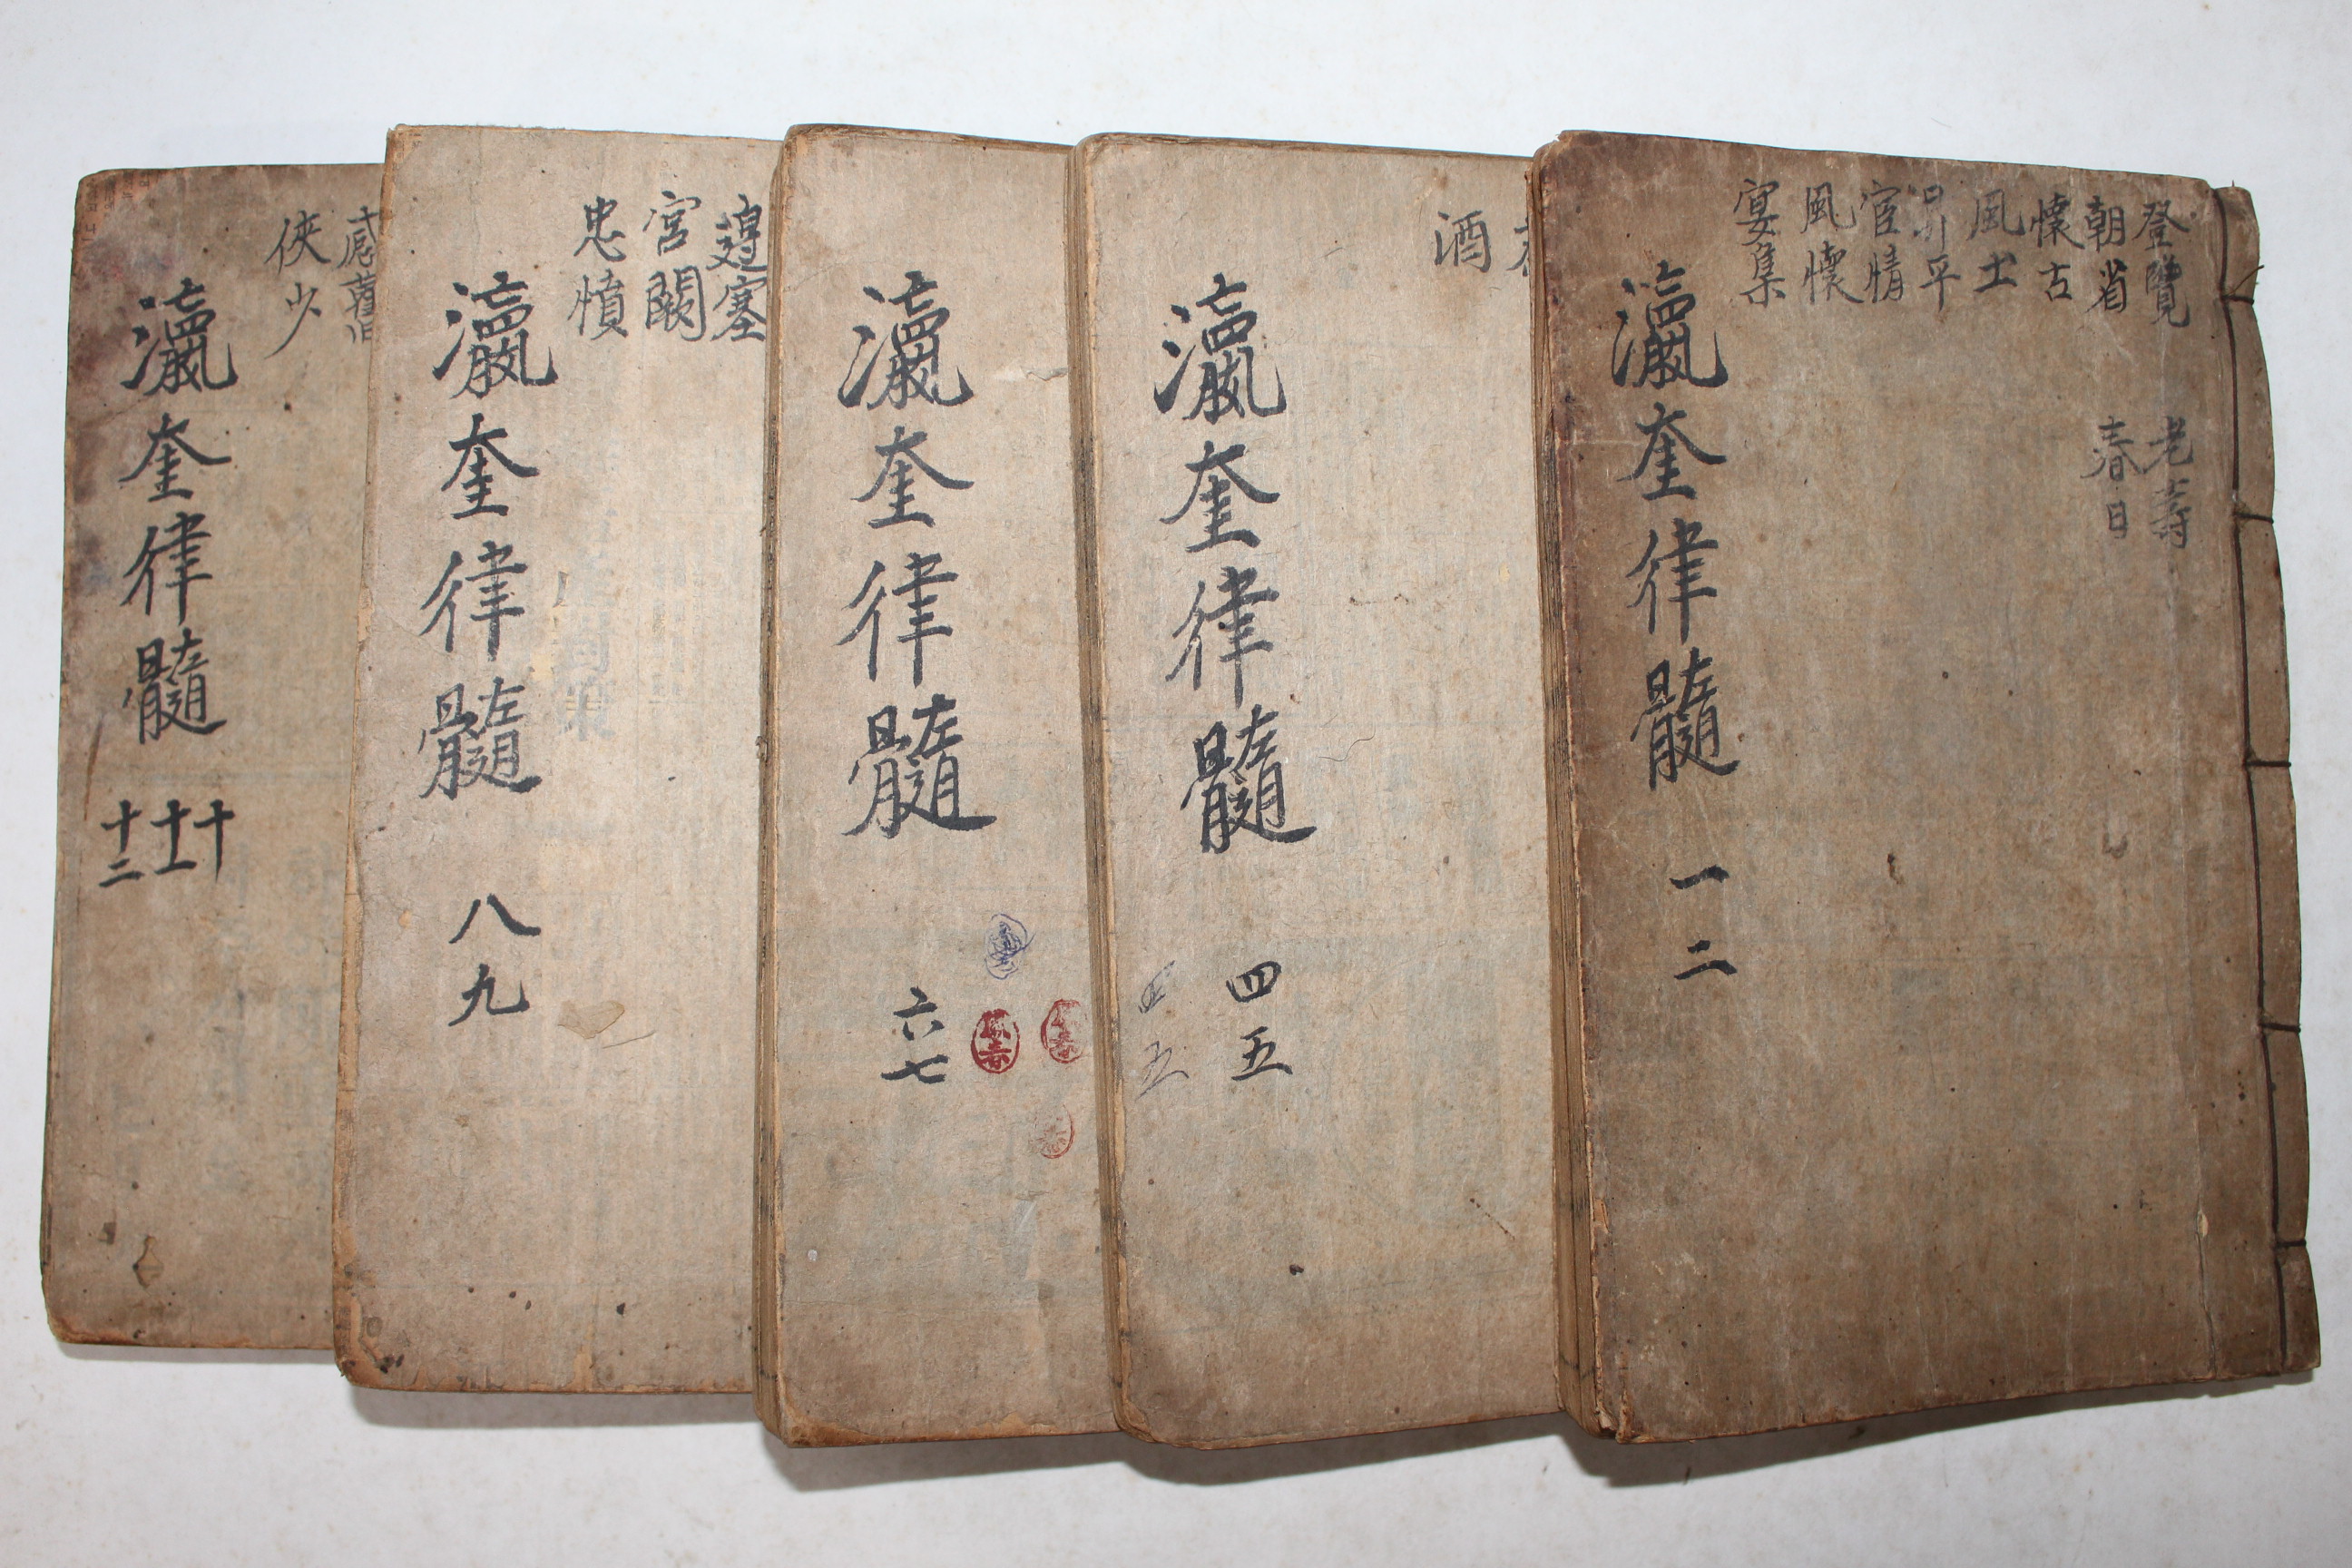 登覽
朝省
懷古
風土
昇平
宦情
風懷
宴集
老壽
春日
瀛奎律髓
一
二
酒
瀛奎律髓
四
五
四
五
瀛奎律髓
六
七
邊塞
宮闕
忠憤
瀛奎律髓
八
九
感舊
俠少
瀛奎律髓
十
十一
十二